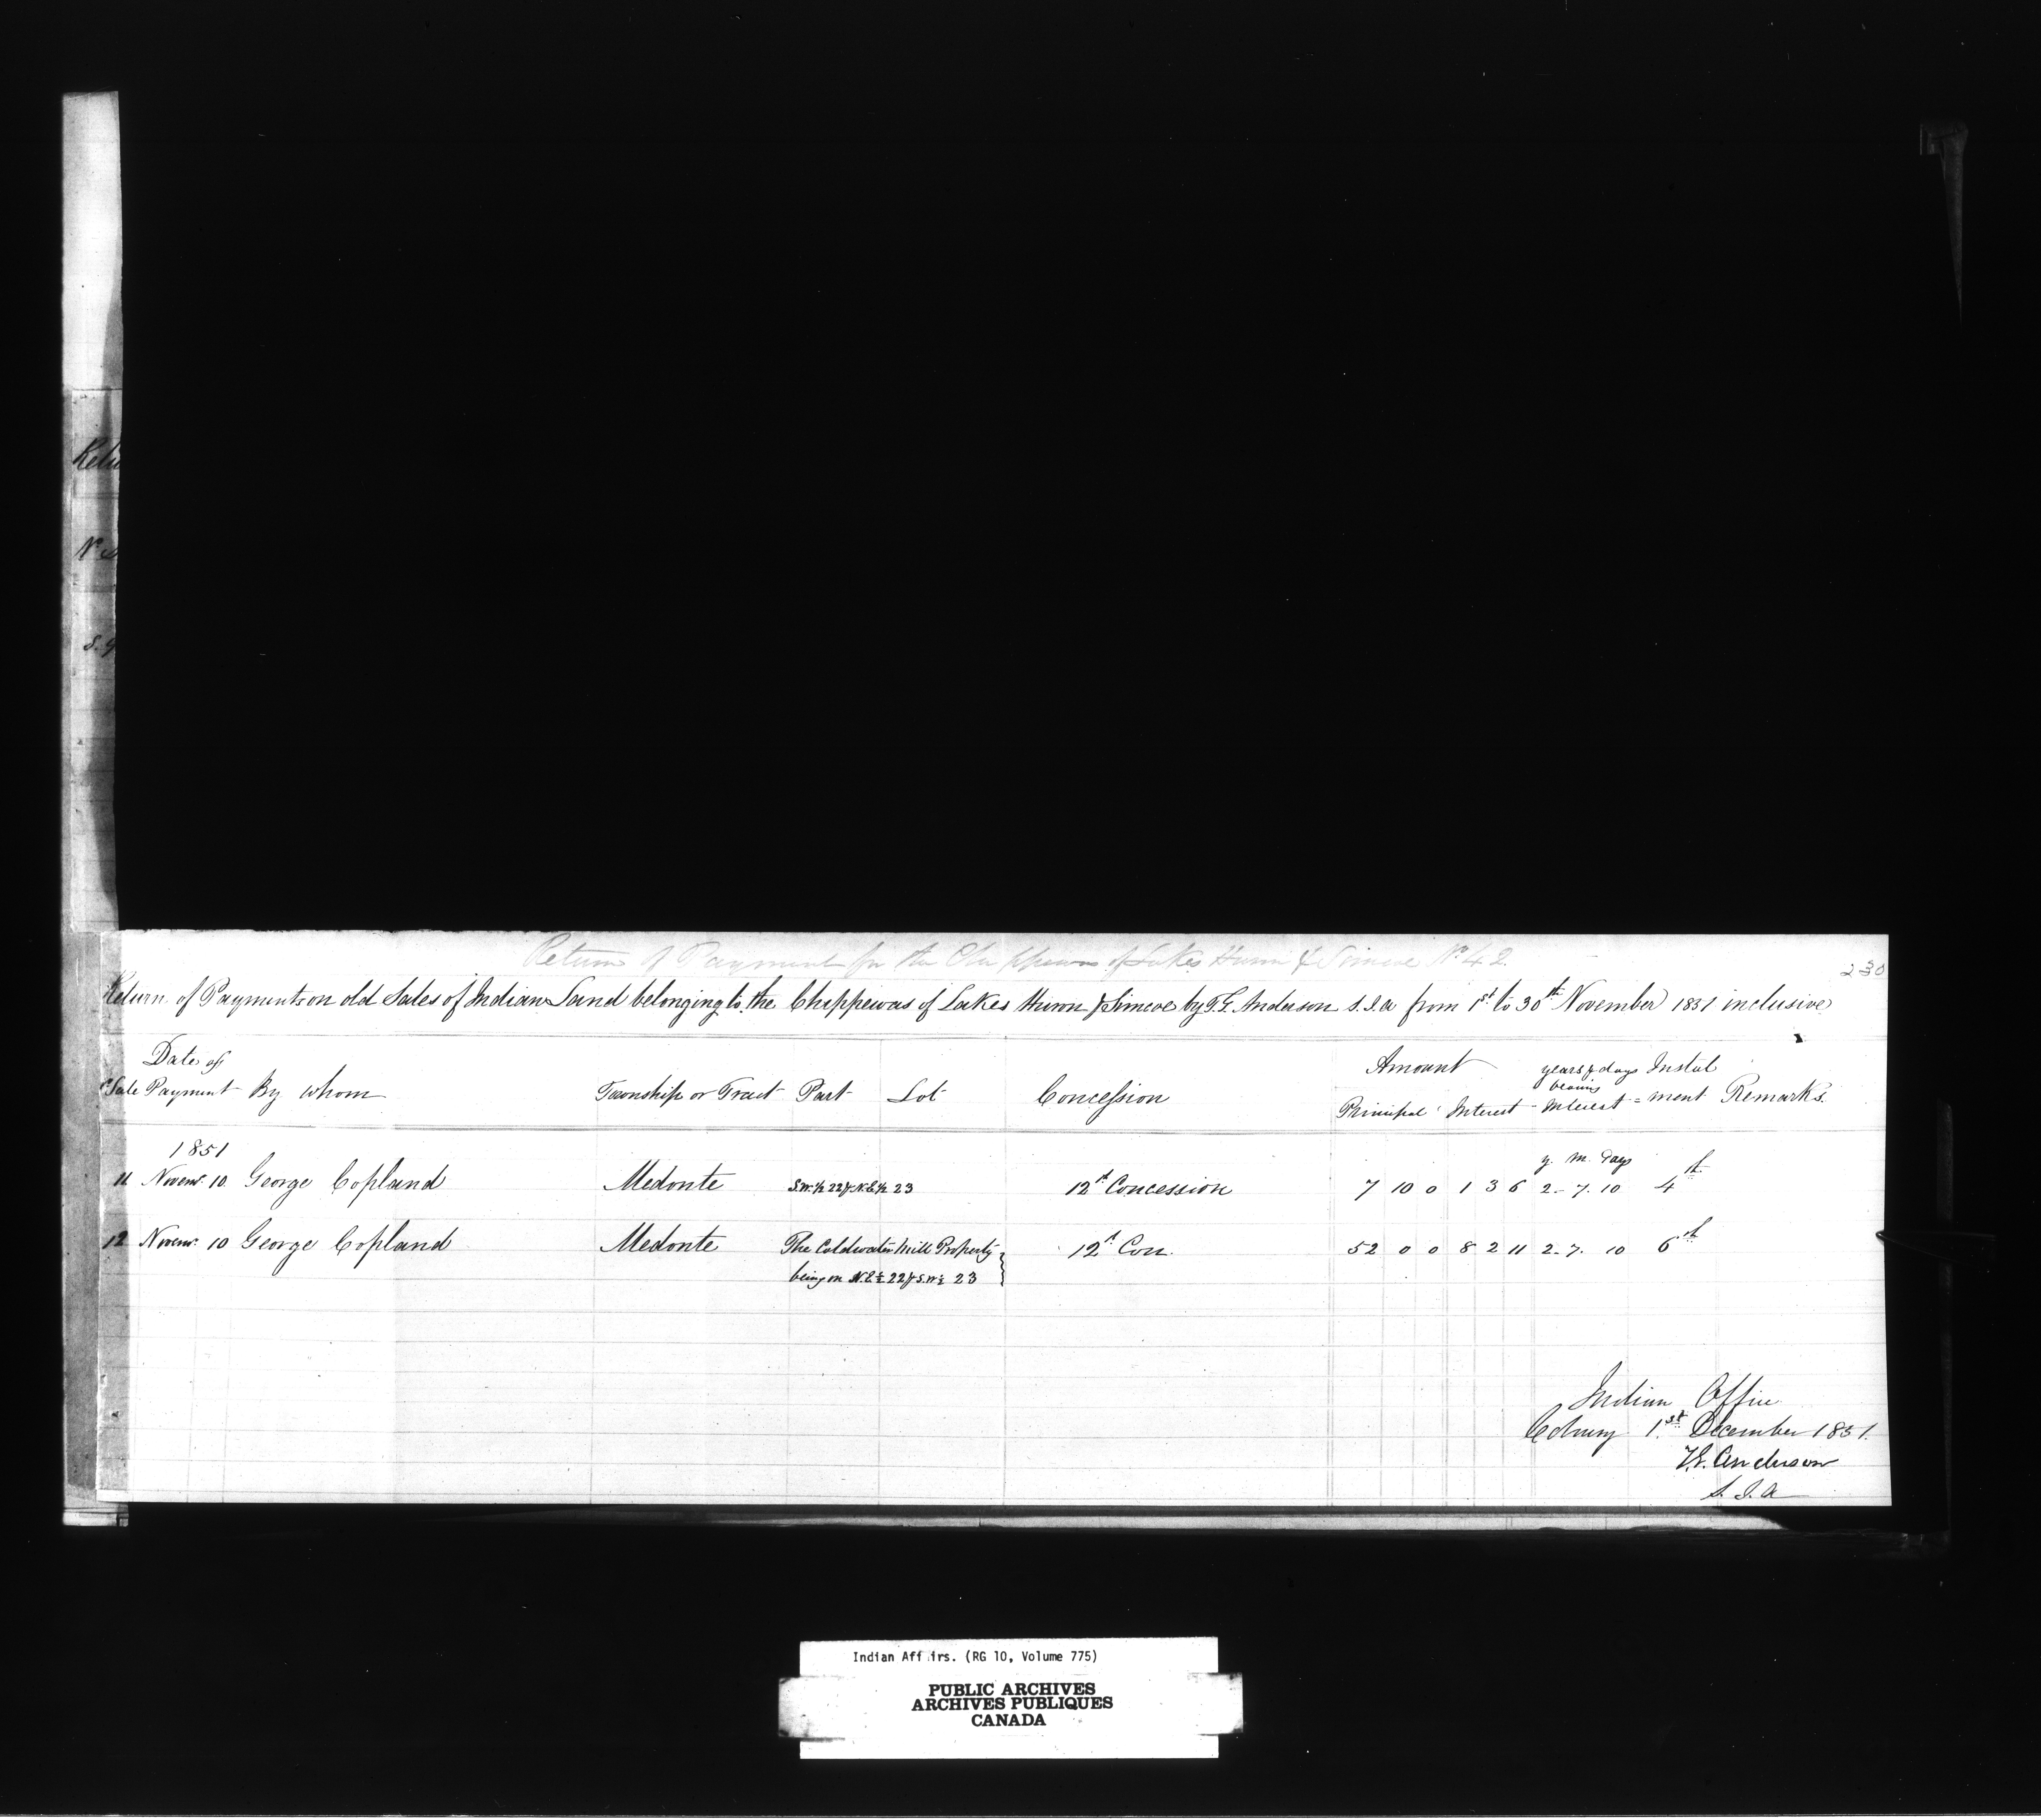 Return of Payment for the Chippewas of Lakes Huron & Simcoe No 42
230
Return of Payments on old Sales of Indian Land belonging to the Chippewas of Lakes Huron & Simcoe by T.G. Anderson S.I.A from 1st to 30th November 1851 inclusive
Date of Amount years & days Instal
Sale Payment By whom Township or Tract Part Lot Concession Principal Interest bearing Interest = ment Remarks.
1851 y. m. Days
11 Novemr. 10 George Copland Medonte S.W. 1/2 22 & N.E. 1/2 23 12th Concession 7 10 0 1 3 6 2 - 7. 10 4th
12 Novemr. 10 George Copland Medonte The Coldwater Mill Property 12th Con. 52 0 0 8 2 11 2 - 7. 10 6th
being on N.E 1/2 22 & S.W 1/2 23
Indian Office
Cobourg 1st December 1851.
T.G. Anderson
S. I. A
Retu
No
Indian Aff irs. (RG 10, Volume 775)
PUBLIC ARCHIVES
ARCHIVES PUBLIQUES
CANADA